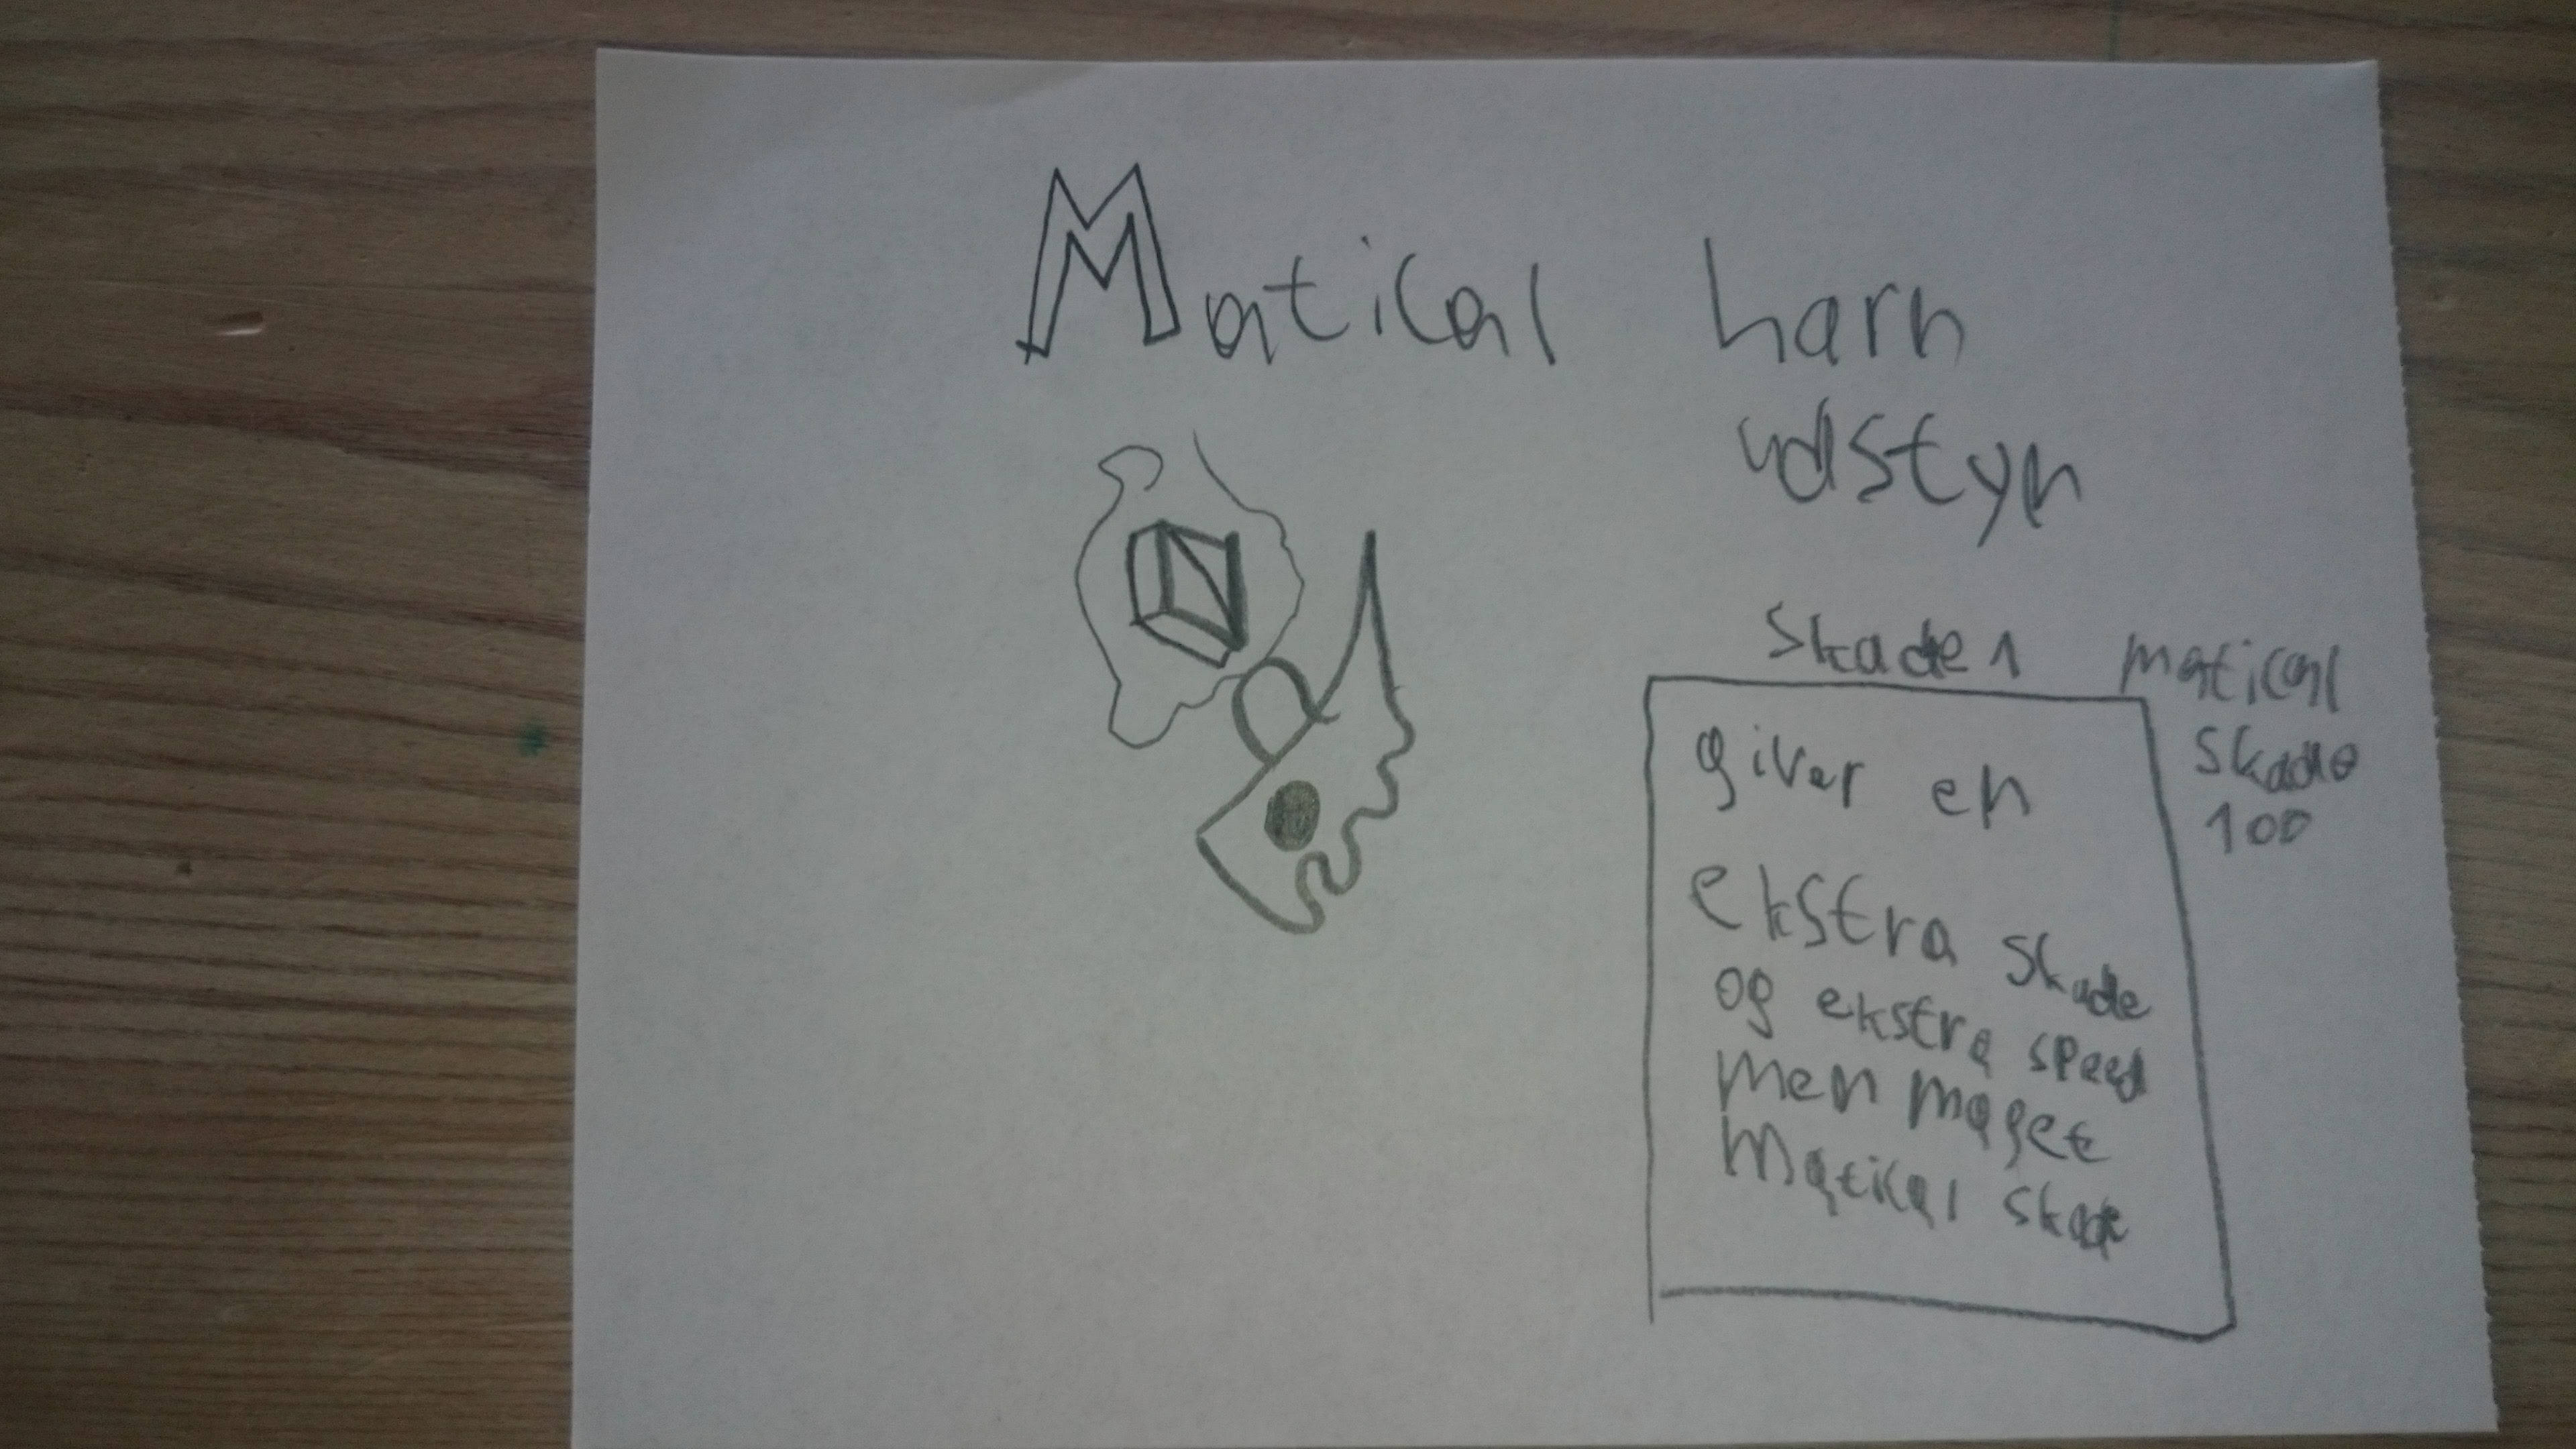 Matical harn
udstyn
Skade 1
matical
skade
100
giver en
ekstra skade
og ekstra speed
men maget
matical skade